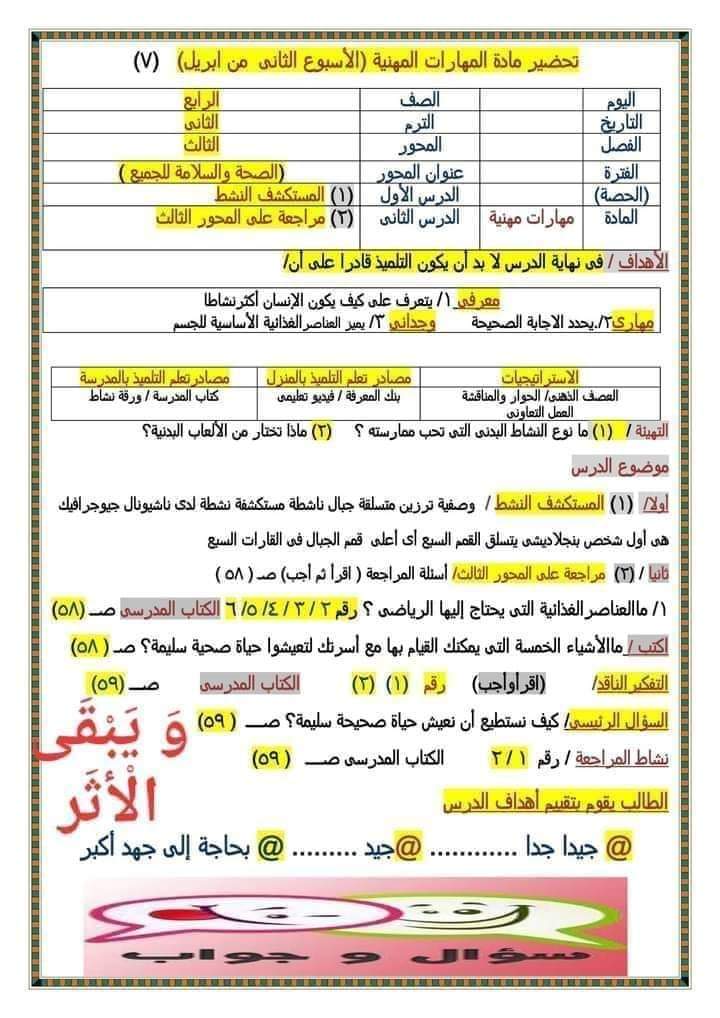 تحضير مادة المهارات المهنية (الأسبوع الثانى من ابريل) (٧)
اليوم الصف الرابع
التاريخ الترم الثانى
الفصل المحور الثالث
الفترة عنوان المحور (الصحة والسلامة للجميع )
(الحصة) الدرس الأول (١) المستكشف النشط
المادة مهارات مهنية الدرس الثانى (٢) مراجعة على المحور الثالث
الأهداف / فى نهاية الدرس لا بد أن يكون التلميذ قادرا على أن/
معرفي ١/ يتعرف على كيف يكون الإنسان أكثرنشاطا
مهارى٢/.يحدد الاجابة الصحيحة وجداني ٣/ يميز العناصرالغذائية الأساسية للجسم
الاستراتيجيات مصادر تعلم التلميذ بالمنزل مصادرتعلم التلميذ بالمدرسة
العصف الذهنى/ الحوار والمناقشة بنك المعرفة / فيديو تعليمى كتاب المدرسة / ورقة نشاط
العمل التعاونى
التهيئة / (١) ما نوع النشاط البدنى التى تحب ممارسته ؟ (٢) ماذا تختار من الألعاب البدنية؟
موضوع الدرس
أولا/ (١) المستكشف النشط / وصفية ترزين متسلقة جبال ناشطة مستكشفة نشطة لدى ناشيونال جيوجرافيك
هى أول شخص بنجلاديشى يتسلق القمم السبع أى أعلى قمم الجبال فى القارات السبع
ثانيا / (٢) مراجعة على المحور الثالث/ أسئلة المراجعة ( اقرأ ثم أجب) صـ ( ٥٨ )
١/ ماالعناصرالغذائية التى يحتاج إليها الرياضى ؟ رقم ٢ / ٣ / ٤/ ٥/ ٦ الكتاب المدرسى صــ (٥٨)
اكتب / ماالأشياء الخمسة التى يمكنك القيام بها مع أسرتك لتعيشوا حياة صحية سليمة؟ صـ ( ٥٨)
التفكيرالناقد/ (اقرأوأجب) رقم (١) (٢) الكتاب المدرسى صــ (٥٩)
السؤال الرئيسى/ كيف نستطيع أن نعيش حياة صحيحة سليمة؟ صــــ ( ٥٩)
نشاط المراجعة / رقم ١ / ٢ الكتاب المدرسى صــــ (٥٩)
وَ يَبْقَى
الْأثَر
الطالب يقوم بتقييم أهداف الدرس
@ جيدا جدا ............ @جيد ......... @ بحاجة إلى جهد أكبر
سؤال و جواب